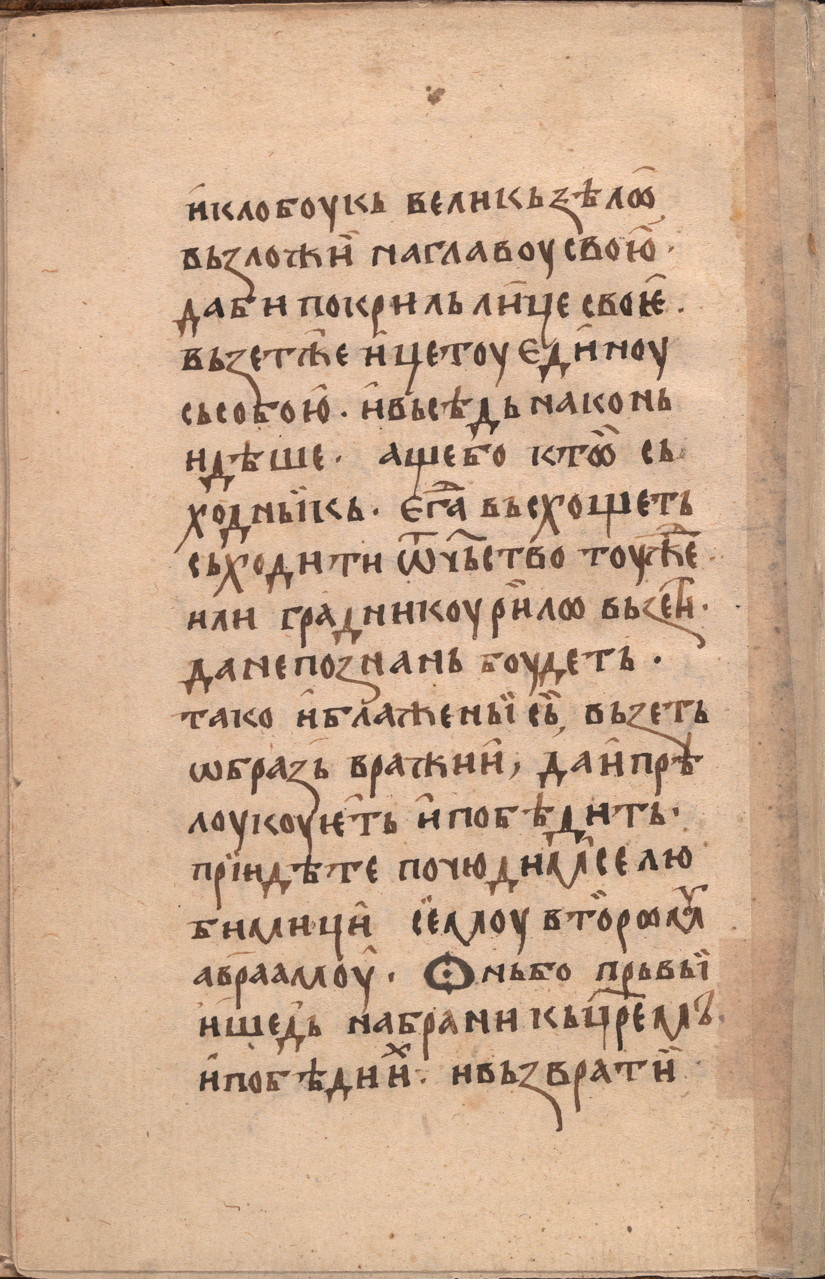 и҆клобоукь великьзѣлѡ
вьзложи҆ наглавоу свою҆·
даби покриль ли҆це своѥ҆.
вьзетже и҆цетоу еди҆ноу
сьсобою҆. и҆вьсѣдь наконь
идѣше. аще бо ктѡ сь
ходныкь. ѥгда вьсхощеть
сьходити ѿчьство тоужⷣе
или градникоу рилѡ вьзети.
данепознань боудеть.
тако и҆блаженыи сьи, вьзеть
ѡбразь вражии҆, даи҆прѣ
лоукоуѥть и҆побѣдить.
прїидѣте почюдимсе лю
бимици҆ сїемоу второмⷹ
авраамоу҆. Ѻньбо прьвыи
и҆шедь набрани кьцⷬремь
и҆побѣдии҆ⷯ. ивьзврати